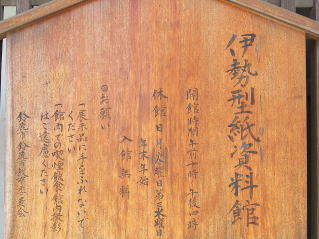 伊勢型紙資料館
開館時間 午前十時 午後四時
休館日 月火曜日 第三水曜日
年末年始
入館無料
◎お願い
一展示品に手をふれないで
ください
一館内での喫煙飲食館内撮影
はご遠慮ください
鈴鹿市 鈴鹿市教育委員会